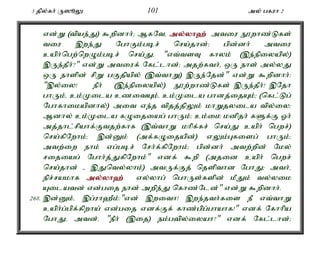 3 தில்கர் ருஸூலு 101 அல் பகரா 2
என்று (வியந்து) கூறினார்; ஆகவே, அல்லாஹ் அவரை நூறாண்டுகள்
வரை இறந்து போகும்படிச் செய்தான்; பின்னர் அவரை
உயிர்பெற்றெழும்படிச் செய்து, "எவ்வளவு காலம் (இந்நிலையில்)
இருந்தீர்?" என்று அவரைக் கேட்டான்; அதற்கவர், ஒரு நாள் அல்லது
ஒரு நாளின் சிறு பகுதியில் (இவ்வாறு) இருந்தேன்" என்று கூறினார்;
"இல்லை! நீர் (இந்நிலையில்) நூற்றாண்டுகள் இருந்தீர்! இதோ
பாரும், உம்முடைய உணவையும், உம்முடைய பானத்தையும்; (கெட்டுப்
போகாமையினால்) அவை எந்த விதத்திலும் மாறுதலடைய வில்லை;
ஆனால் உம்முடைய கழுதையைப் பாரும்; உம்மை மனிதர்களுக்கு ஓர்
அத்தாட்சியாக்குவதற்காக (இவ்வாறு மரிக்கச் செய்து உயிர் பெறச்)
செய்கிறோம்; இன்னும் (அக்கழுதையின்) எலும்புகளைப் பாரும்;
அவற்றை நாம் எப்படிச் சேர்க்கிறோம்; பின்னர் அவற்றின் மேல்
சதையைப் போர்த்துகிறோம்" எனக் கூறி (அதனை உயிர் பெறச்
செய்தான் - இதுவெல்லாம்) அவருக்குத் தெளிவான போது; அவர்,
நிச்சயமாக அல்லாஹ் எல்லாப் பொருள்களின் மீதும் வல்லமை
யுடையவன் என்பதை நான் அறிந்து கொண்டேன்" என்று கூறினார்.
260. இன்னும், இப்ராஹீம்:"என் இறைவா! இறந்தவர்களை நீ எவ்வாறு
உயிர்ப்பிக்கிறாய் என்பதை எனக்குக் காண்பிப்பாயாக!" எனக் கோரிய
போது, அவன், "நீர் (இதை) நம்பவில்லையா?" எனக் கேட்டான்;